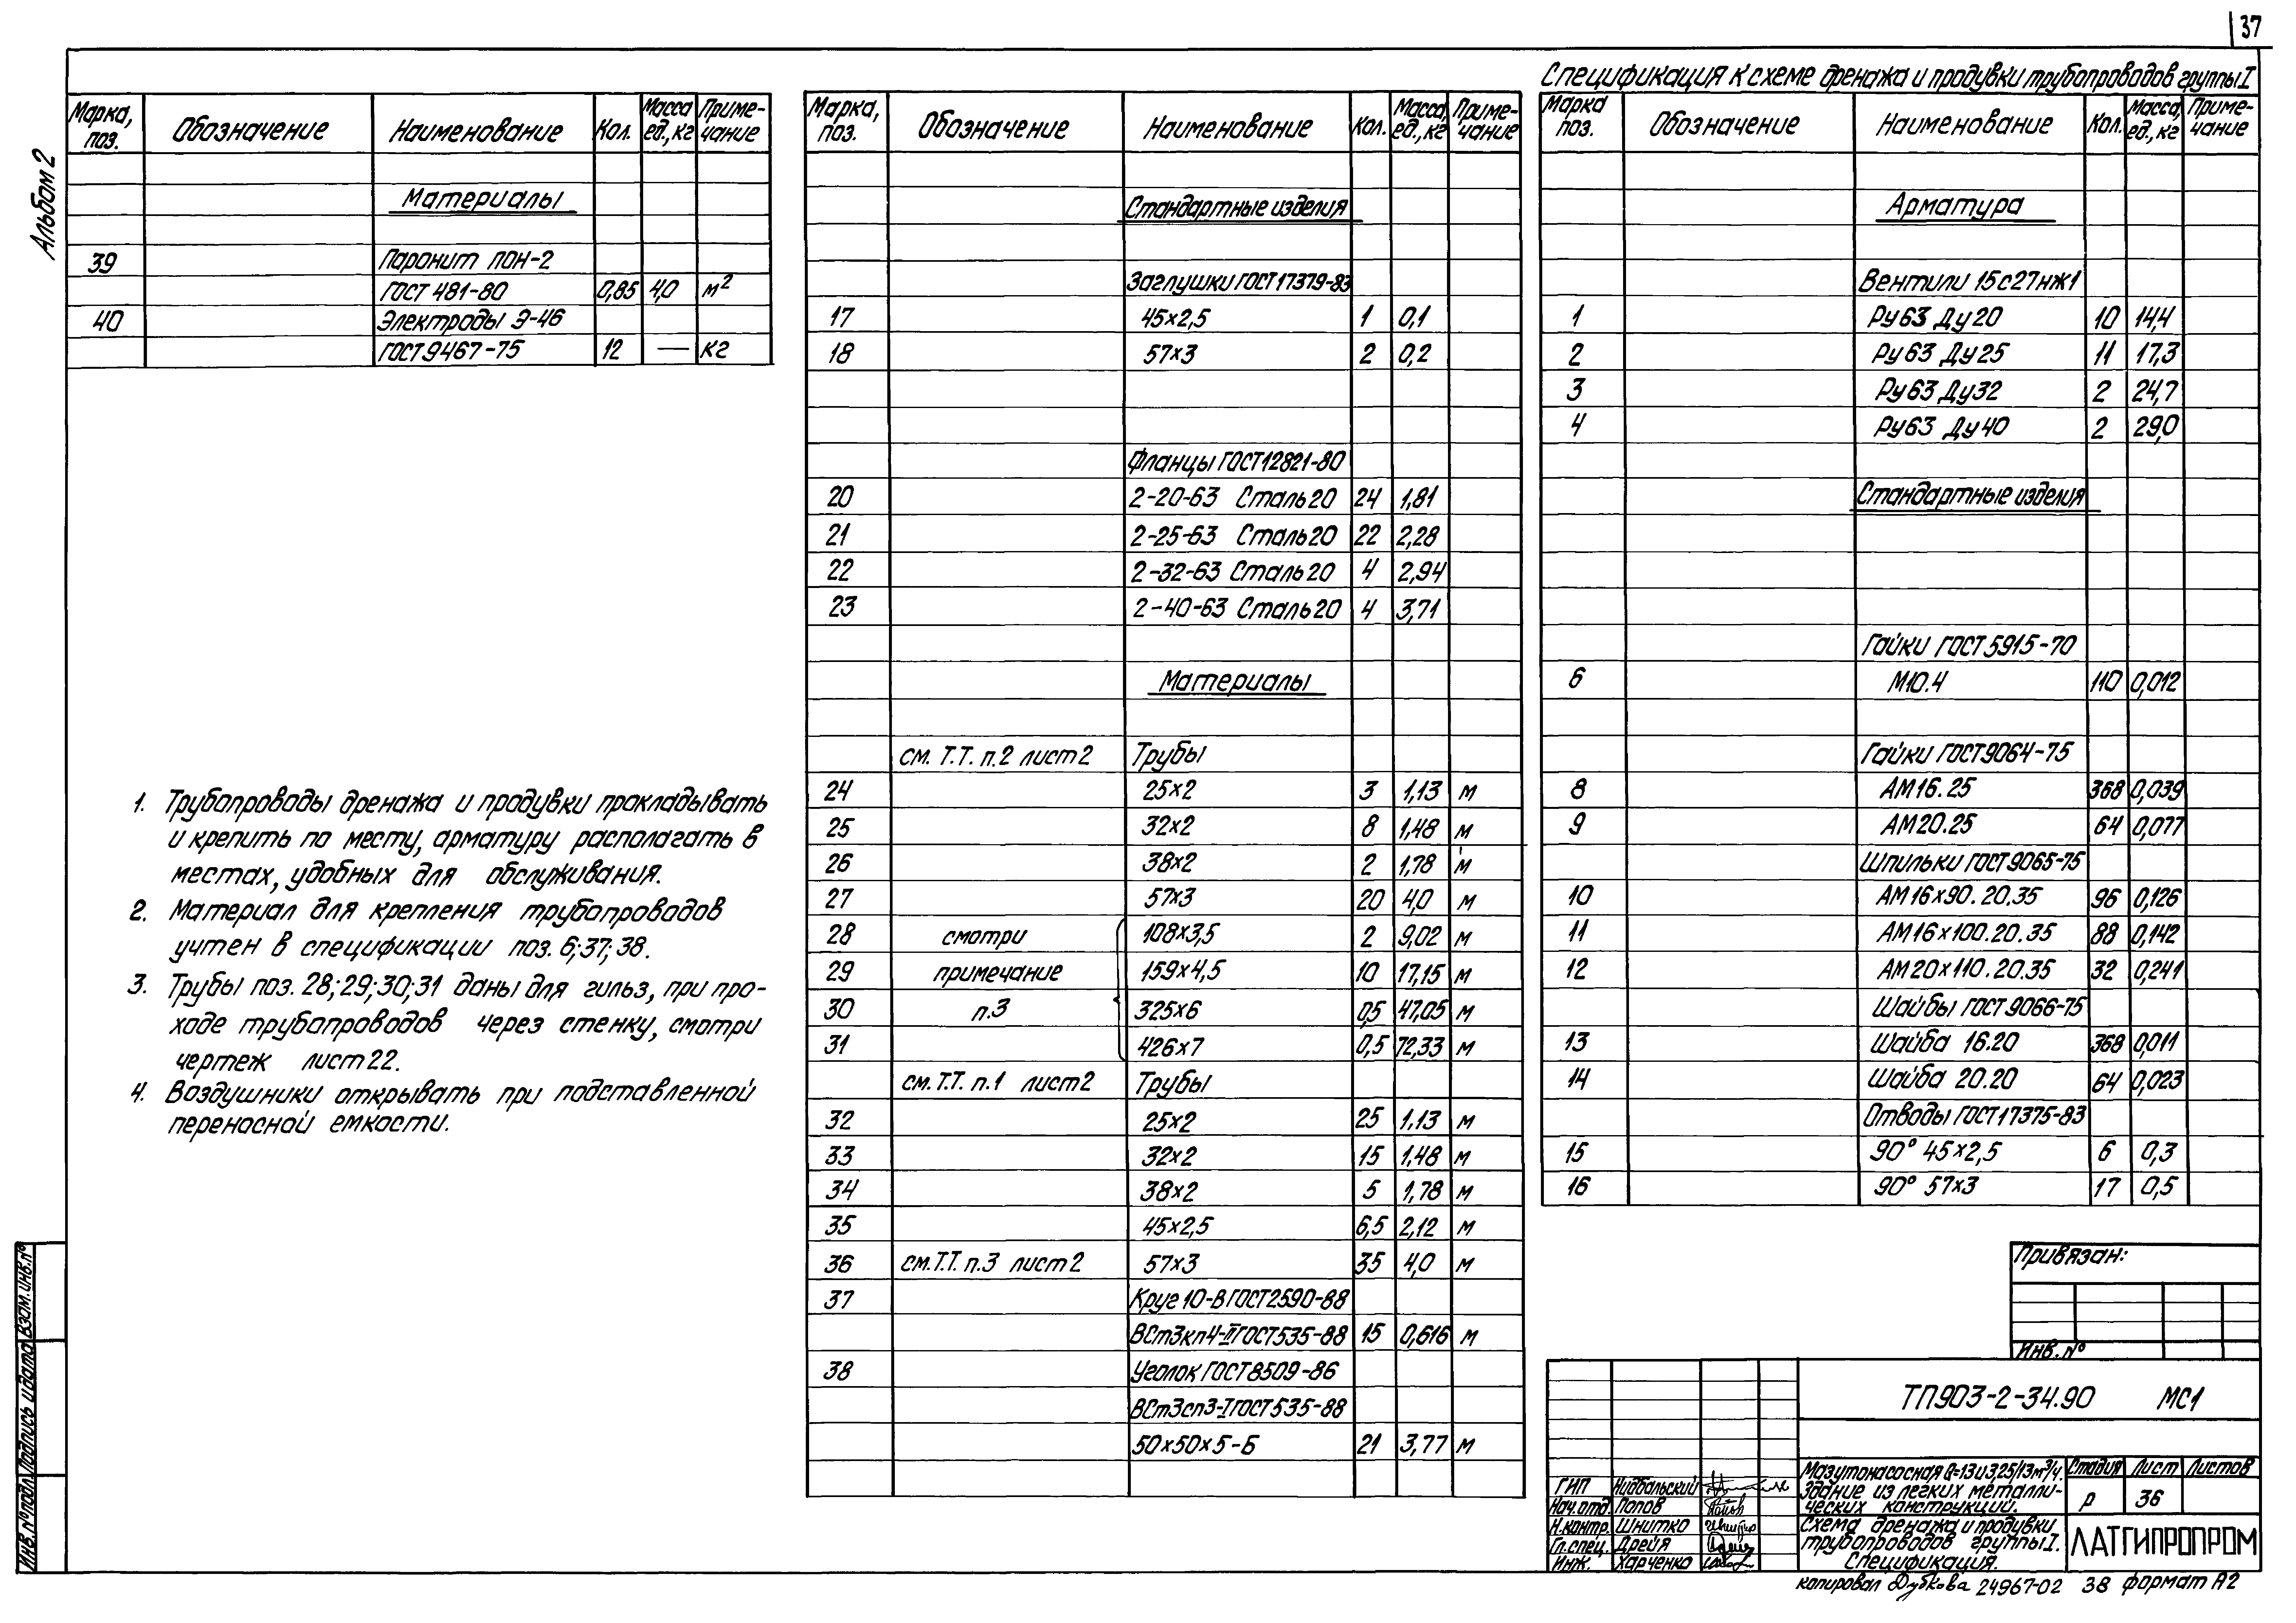 37
Альбом 2
Спецификация к схеме дренажа и продувки трубопроводов группы I
Марка, поз. Обозначение Наименование Кол. Масса ед., кг Примечание
Материалы
39 Паронит ПОН-2
ГОСТ 481-80 0,85 4,0 м²
40 Электроды Э-46
ГОСТ 9467-75 12 — кг
1. Трубопроводы дренажа и продувки прокладывать
и крепить по месту, арматуру располагать в
местах, удобных для обслуживания.
2. Материал для крепления трубопроводов
учтен в спецификации поз. 6;37;38.
3. Трубы поз. 28;29;30;31 даны для гильз, при про-
ходе трубопроводов через стенку, смотри
чертеж лист 22.
4. Воздушники открывать при подставленной
переносной емкости.
Марка, поз. Обозначение Наименование Кол. Масса, ед., кг Примечание
Стандартные изделия
Заглушки ГОСТ 17379-83
17 45х2,5 1 0,1
18 57х3 2 0,2
Фланцы ГОСТ 12821-80
20 2-20-63 Сталь 20 24 1,81
21 2-25-63 Сталь 20 22 2,28
22 2-32-63 Сталь 20 4 2,94
23 2-40-63 Сталь 20 4 3,71
Материалы
см. Т.Т. п.2 лист 2 Трубы
24 25х2 3 1,13 м
25 32х2 8 1,48 м
26 38х2 2 1,78 м
27 57х3 20 4,0 м
28 смотри 108х3,5 2 9,02 м
29 примечание 159х4,5 10 17,15 м
30 п.3 325х6 0,5 47,05 м
31 426х7 0,5 72,33 м
см. Т.Т. п.1 лист 2 Трубы
32 25х2 25 1,13 м
33 32х2 15 1,48 м
34 38х2 5 1,78 м
35 45х2,5 6,5 2,12 м
36 см. Т.Т. п.3 лист 2 57х3 35 4,0 м
37 Круг 10-В ГОСТ 2590-88
ВСт3кп4-II ГОСТ 535-88 15 0,616 м
38 Уголок ГОСТ 8509-86
ВСт3сп3-I ГОСТ 535-88
50х50х5-Б 21 3,77 м
Марка поз. Обозначение Наименование Кол. Масса, ед., кг Примечание
Арматура
Вентили 15с27нж1
1 Ру 63 Ду 20 10 14,4
2 Ру 63 Ду 25 11 17,3
3 Ру 63 Ду 32 2 24,7
4 Ру 63 Ду 40 2 29,0
Стандартные изделия
Гайки ГОСТ 5915-70
6 М10.4 110 0,012
Гайки ГОСТ 9064-75
8 АМ16.25 368 0,039
9 АМ20.25 64 0,077
Шпильки ГОСТ 9065-75
10 АМ16х90.20.35 96 0,126
11 АМ16х100.20.35 88 0,142
12 АМ20х110.20.35 32 0,241
Шайбы ГОСТ 9066-75
13 Шайба 16.20 368 0,011
14 Шайба 20.20 64 0,023
Отводы ГОСТ 17375-83
15 90° 45х2,5 6 0,3
16 90° 57х3 17 0,5
Привязан:
Инв. №
ТП 903-2-34.90 МС1
ГИП Нидбальский
Нач. отд. Попов
Н. контр. Шнитко
Гл. спец. Дрейя
Инж. Харченко
Мазутонасосная Q=13 и 3,25/13 м³/ч.
Здание из легких металли-
ческих конструкций.
Стадия Лист Листов
Р 36
Схема дренажа и продувки
трубопроводов группы I.
Спецификация.
ЛАТГИПРОПРОМ
копировал Дубкова 24967-02 38 формат А2
Инв. № подл. Подпись и дата Взам. инв. №